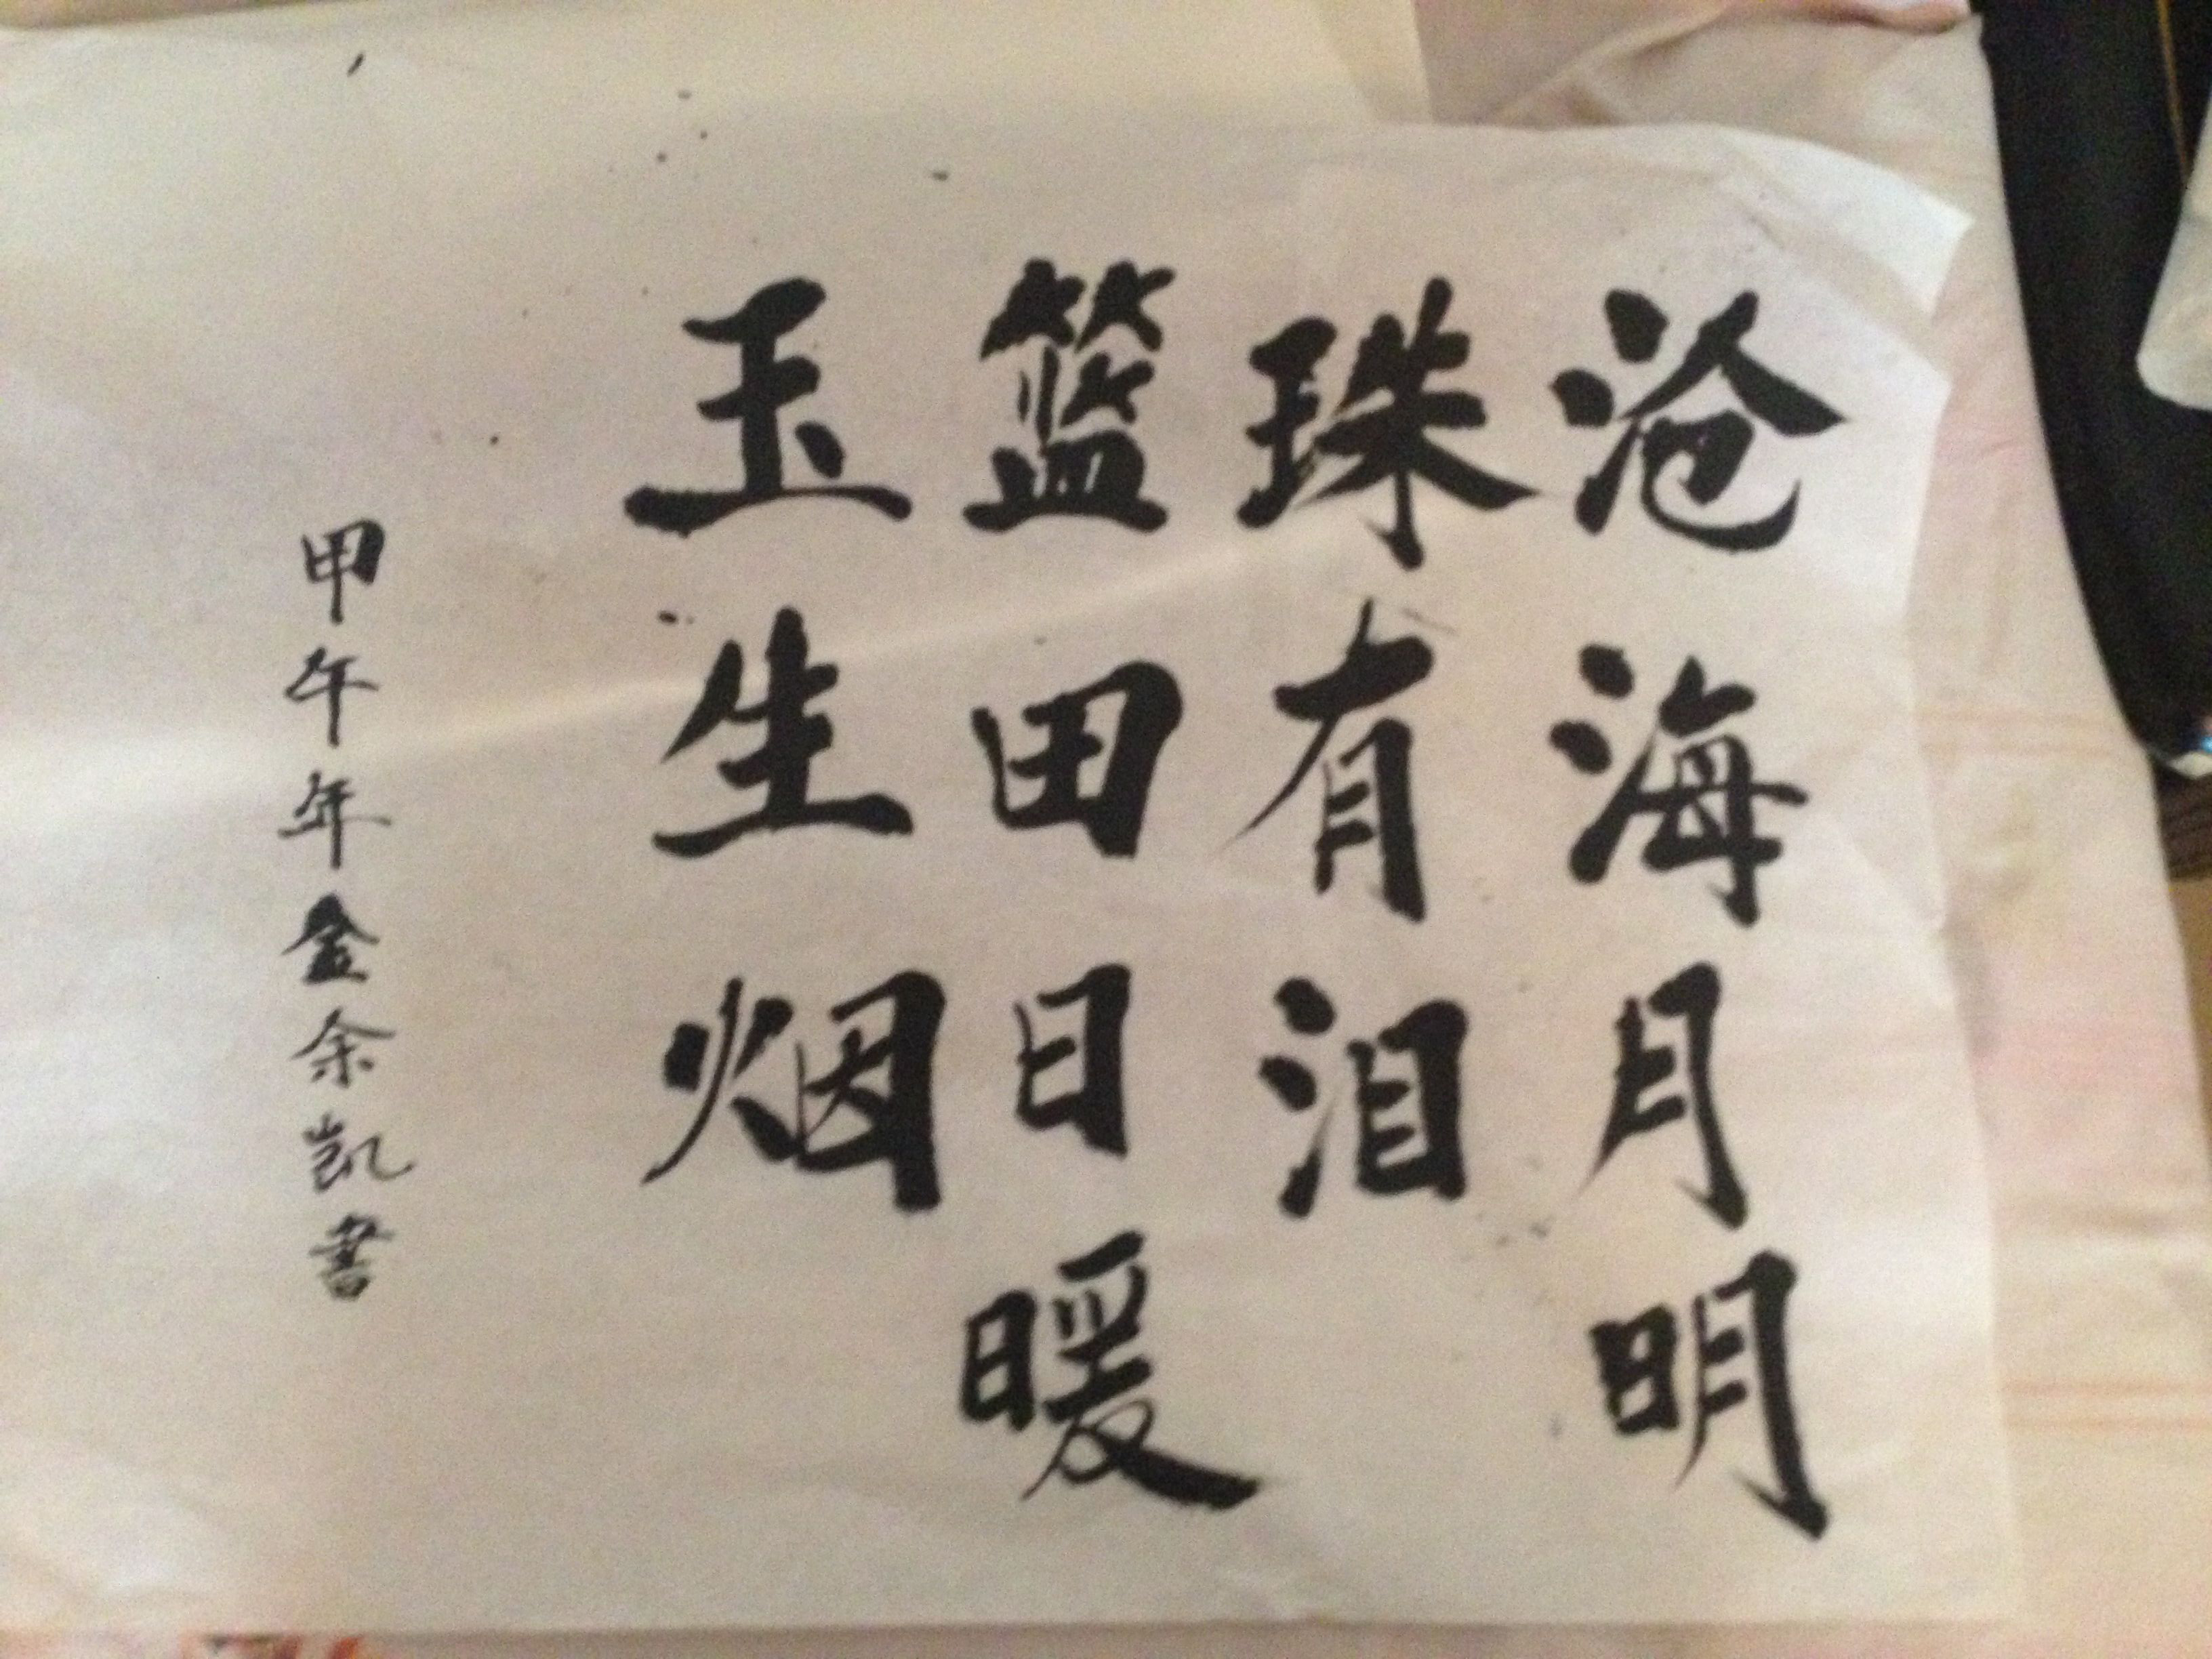 沧海月明
珠有泪
篮田日暖
玉生烟
甲午年金余凯書